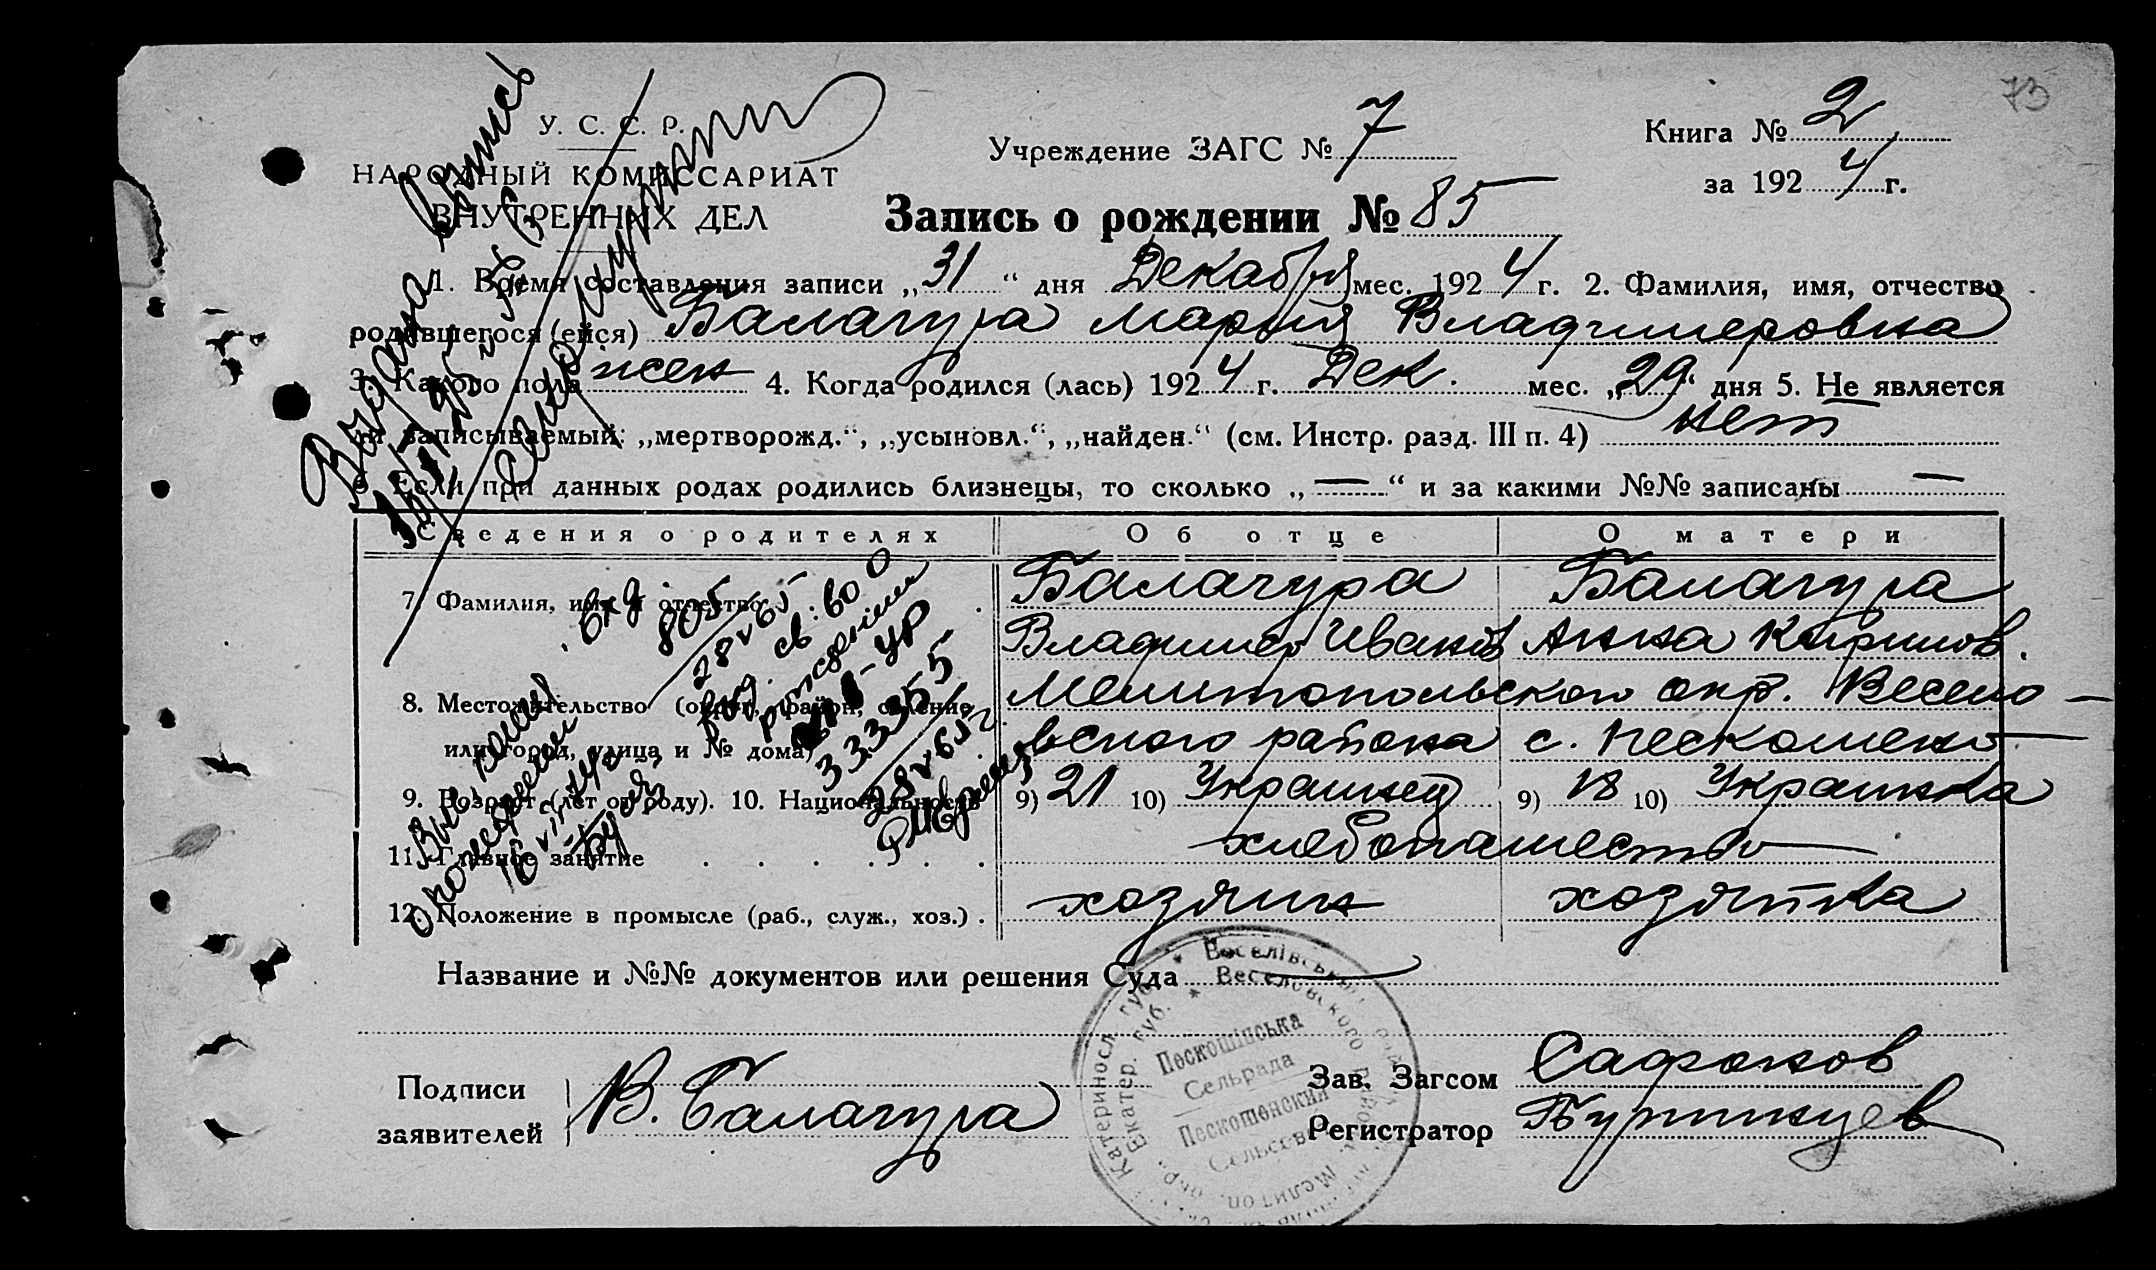 73
У. С. С. Р.
НАРОДНЫЙ КОМИССАРИАТ
ВНУТРЕННИХ ДЕЛ
Учреждение ЗАГС № 7
Книга № 2
за 1924 г.
Запись о рождении № 85
1. Время составления записи „31“ дня Декабря мес. 1924 г. 2. Фамилия, имя, отчество
родившегося (ейся) Балагура Мария Владимеровна
3. Какого пола жен 4. Когда родился (лась) 1924 г. Дек. мес. „29“ дня 5. Не является
ли записываемый: „мертворожд.“, „усыновл.“, „найден.“ (см. Инстр. разд. III п. 4) нет
6. Если при данных родах родились близнецы, то сколько „—“ и за какими №№ записаны —
Сведения о родителях Об отце О матери
7. Фамилия, имя и отчество. Балагура Балагура
Владимер Иванов Анна Кирилов.
8. Местожительство (округ, район, селение Мелитопольского окр. Весело-
или город, улица и № дома) вского района с. Пескошено
9. Возраст (лет от роду). 10. Национальность 9) 21 10) Украинец 9) 18 10) Украинка
11. Главное занятие хлебопашество
12. Положение в промысле (раб., служ., хоз.) . хозяин хозяйка
Название и №№ документов или решения Суда
Подписи
заявителей В. Балагура
Зав. Загсом Сафонов
Регистратор
Выдана
вхд.
805
28 V 65
св. во о
рождении
УР
333355
28 V 65 г
Пескошинська
Сельрада
Пескошенский
Сельсовет